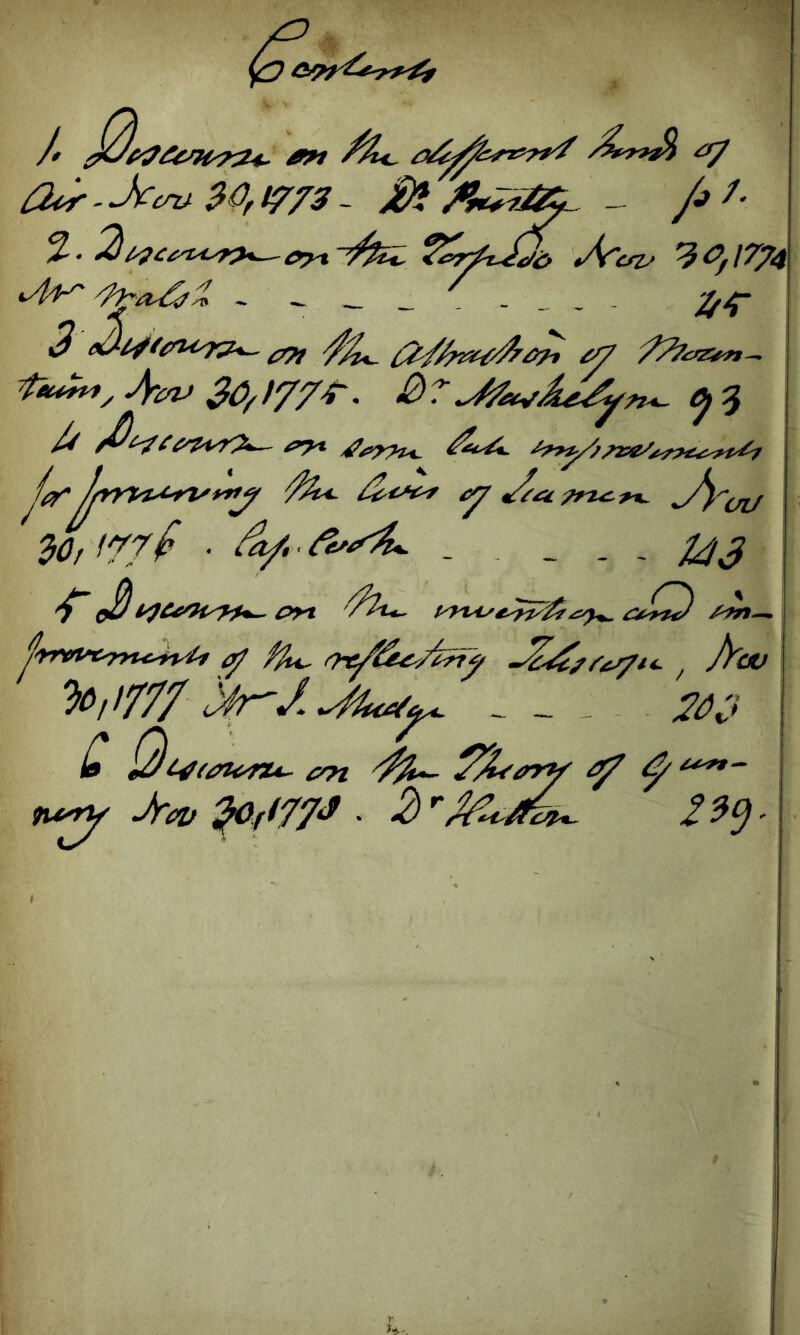 Contents
1. Discourse on the different kinds of
Air - Nov 30, 1773 - Dr Pringle - p 1.
2. Discourse on the Torpedo Nov 30, 1774
25
3 Discourse on the Attraction of Moun-
tains, Nov 30, 1775. Dr Maskelyne 93
4 Discourse on some late improvements
for preserving the lives of Seamen Nov
30, 1776. Cap. Cook - - - - 143
5 Discourse on the invention and im-
provements of the reflecting Telescope, Nov
30, 1777 Mr J. Mudge - - - 203
6 Discourse on the Theory of Gun-
nery Nov 30, 1778. Dr Hutton 239.